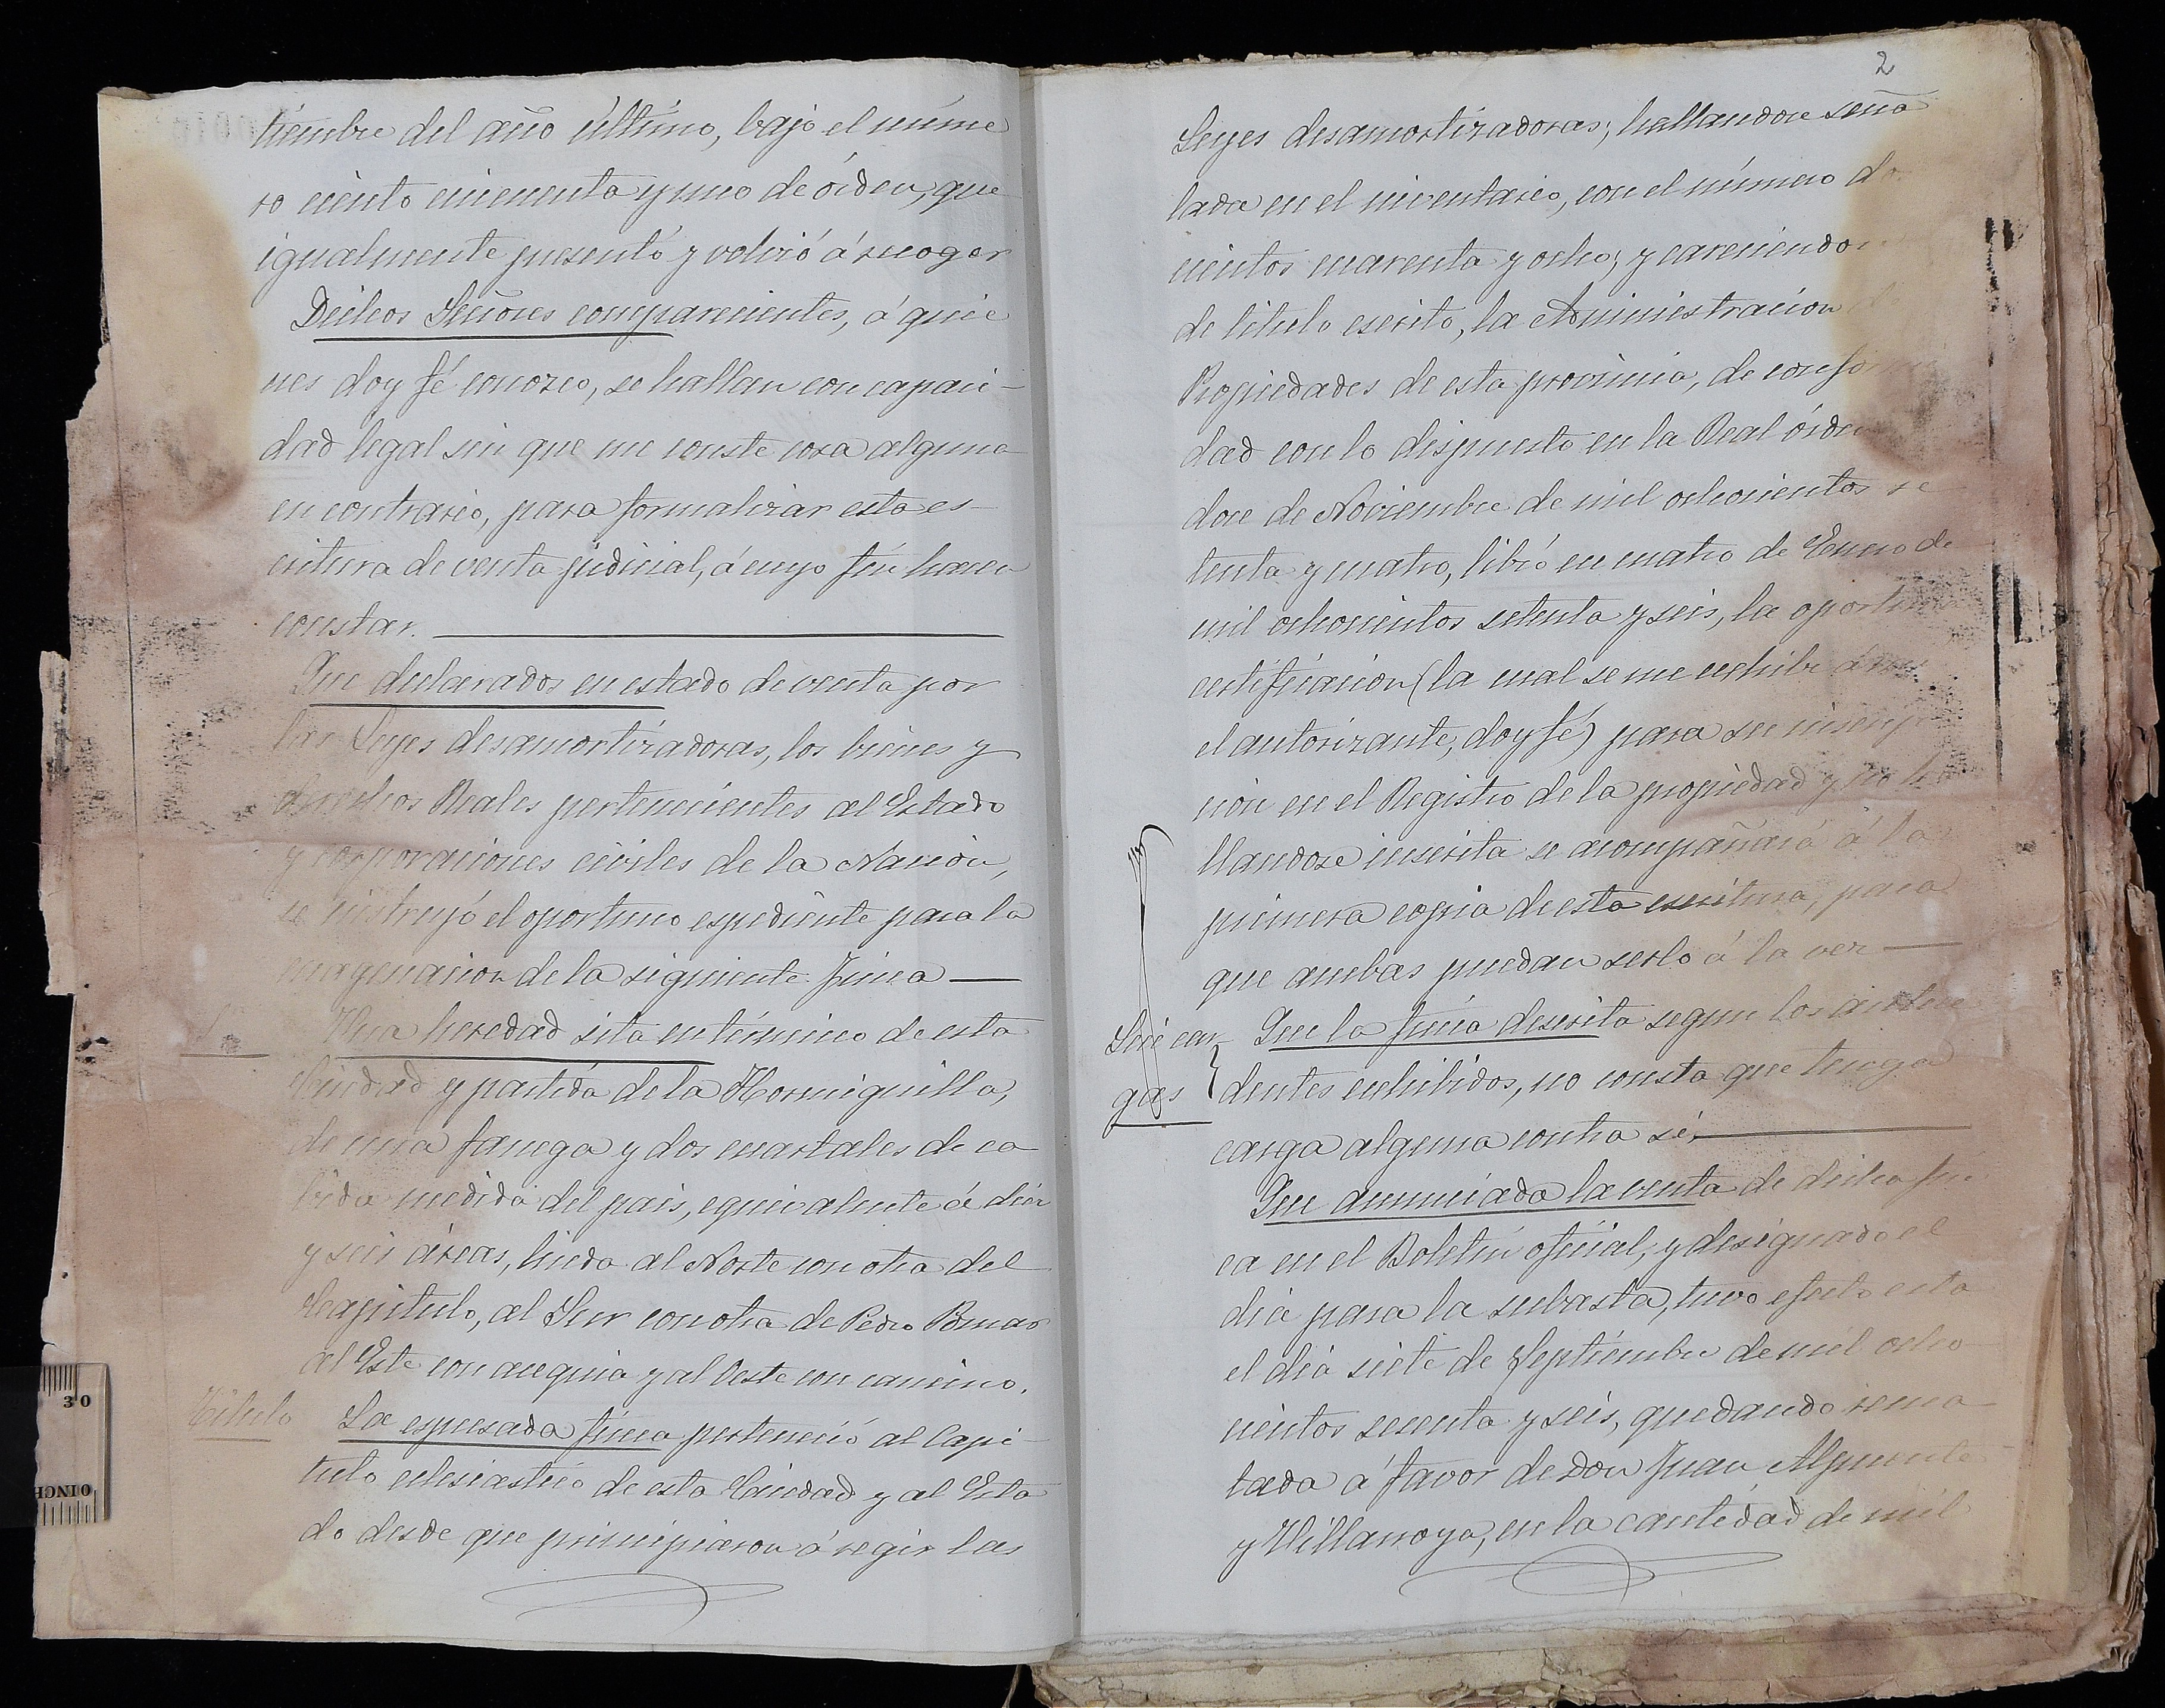 tiembre del año último, bajo el núme
ro ciento cincuenta y uno de órden, que
igualmente presentó y volvió á recoger
Dichos Señores comparecientes, á quie
nes doy fé conozco, se hallan con capaci-
dad legal sin que me conste cosa alguna
en contrario, para formalizar esta es-
critura de venta judicial, á cuyo fin hacen
constar.
Que declarados en estado de venta por
las Leyes desamortizadoras, los bienes y
derechos Reales pertenecientes al Estado
y corporaciones civiles de la Nacion,
se instruyó el oportuno espediente para la
enagenacion de la siguiente finca
Una heredad sita en término de esta
Ciudad y partida de la Hormiguilla,
de una fanega y dos cuartales de ca
bida medida del pais, equivalente á diez
y seis áreas, linda al Norte con otra del
Capitulo, al Sur con otra de Pedro Pomar
al Este con acequia y al Oeste con camino.
Título
La espresada finca perteneció al Capi-
tulo eclesiastico de esta Ciudad y al Esta
do desde que principiaron á regir las
2
Leyes desamortizadoras; hallandose seña
lada en el inventario, con el número do
cientos cuarenta y ocho; y careciendo
de titulo escrito, la Administracion
Propiedades de esta provincia, de confor
dad con lo dispuesto en la Real órden
doce de Noviembre de mil ochocientos se
tenta y cuatro, libró en cuatro de Enero de
mil ochocientos setenta y seis, la oportuna
certificacion (la cual se me exhibe á
el autorizante, doy fé) para su inscrip
cion en el Registro de la propiedad y no ha
llandose inscrita se acompañará á la
primera copia de esta escritura, para
que ambas puedan serlo á la vez
Sin car-
gas
Que la finca descrita segun los antece
dentes exhibidos, no consta que tenga
carga alguna contra sí.
Que anunciada la venta de dicha fin
ca en el Boletin oficial, y designado el
dia para la subasta, tuvo efecto esta
el dia siete de Septiembre de mil ocho
cientos sesenta y seis, quedando rema
tada á favor de Don Juan
y Villanoya, en la cantidad de mil